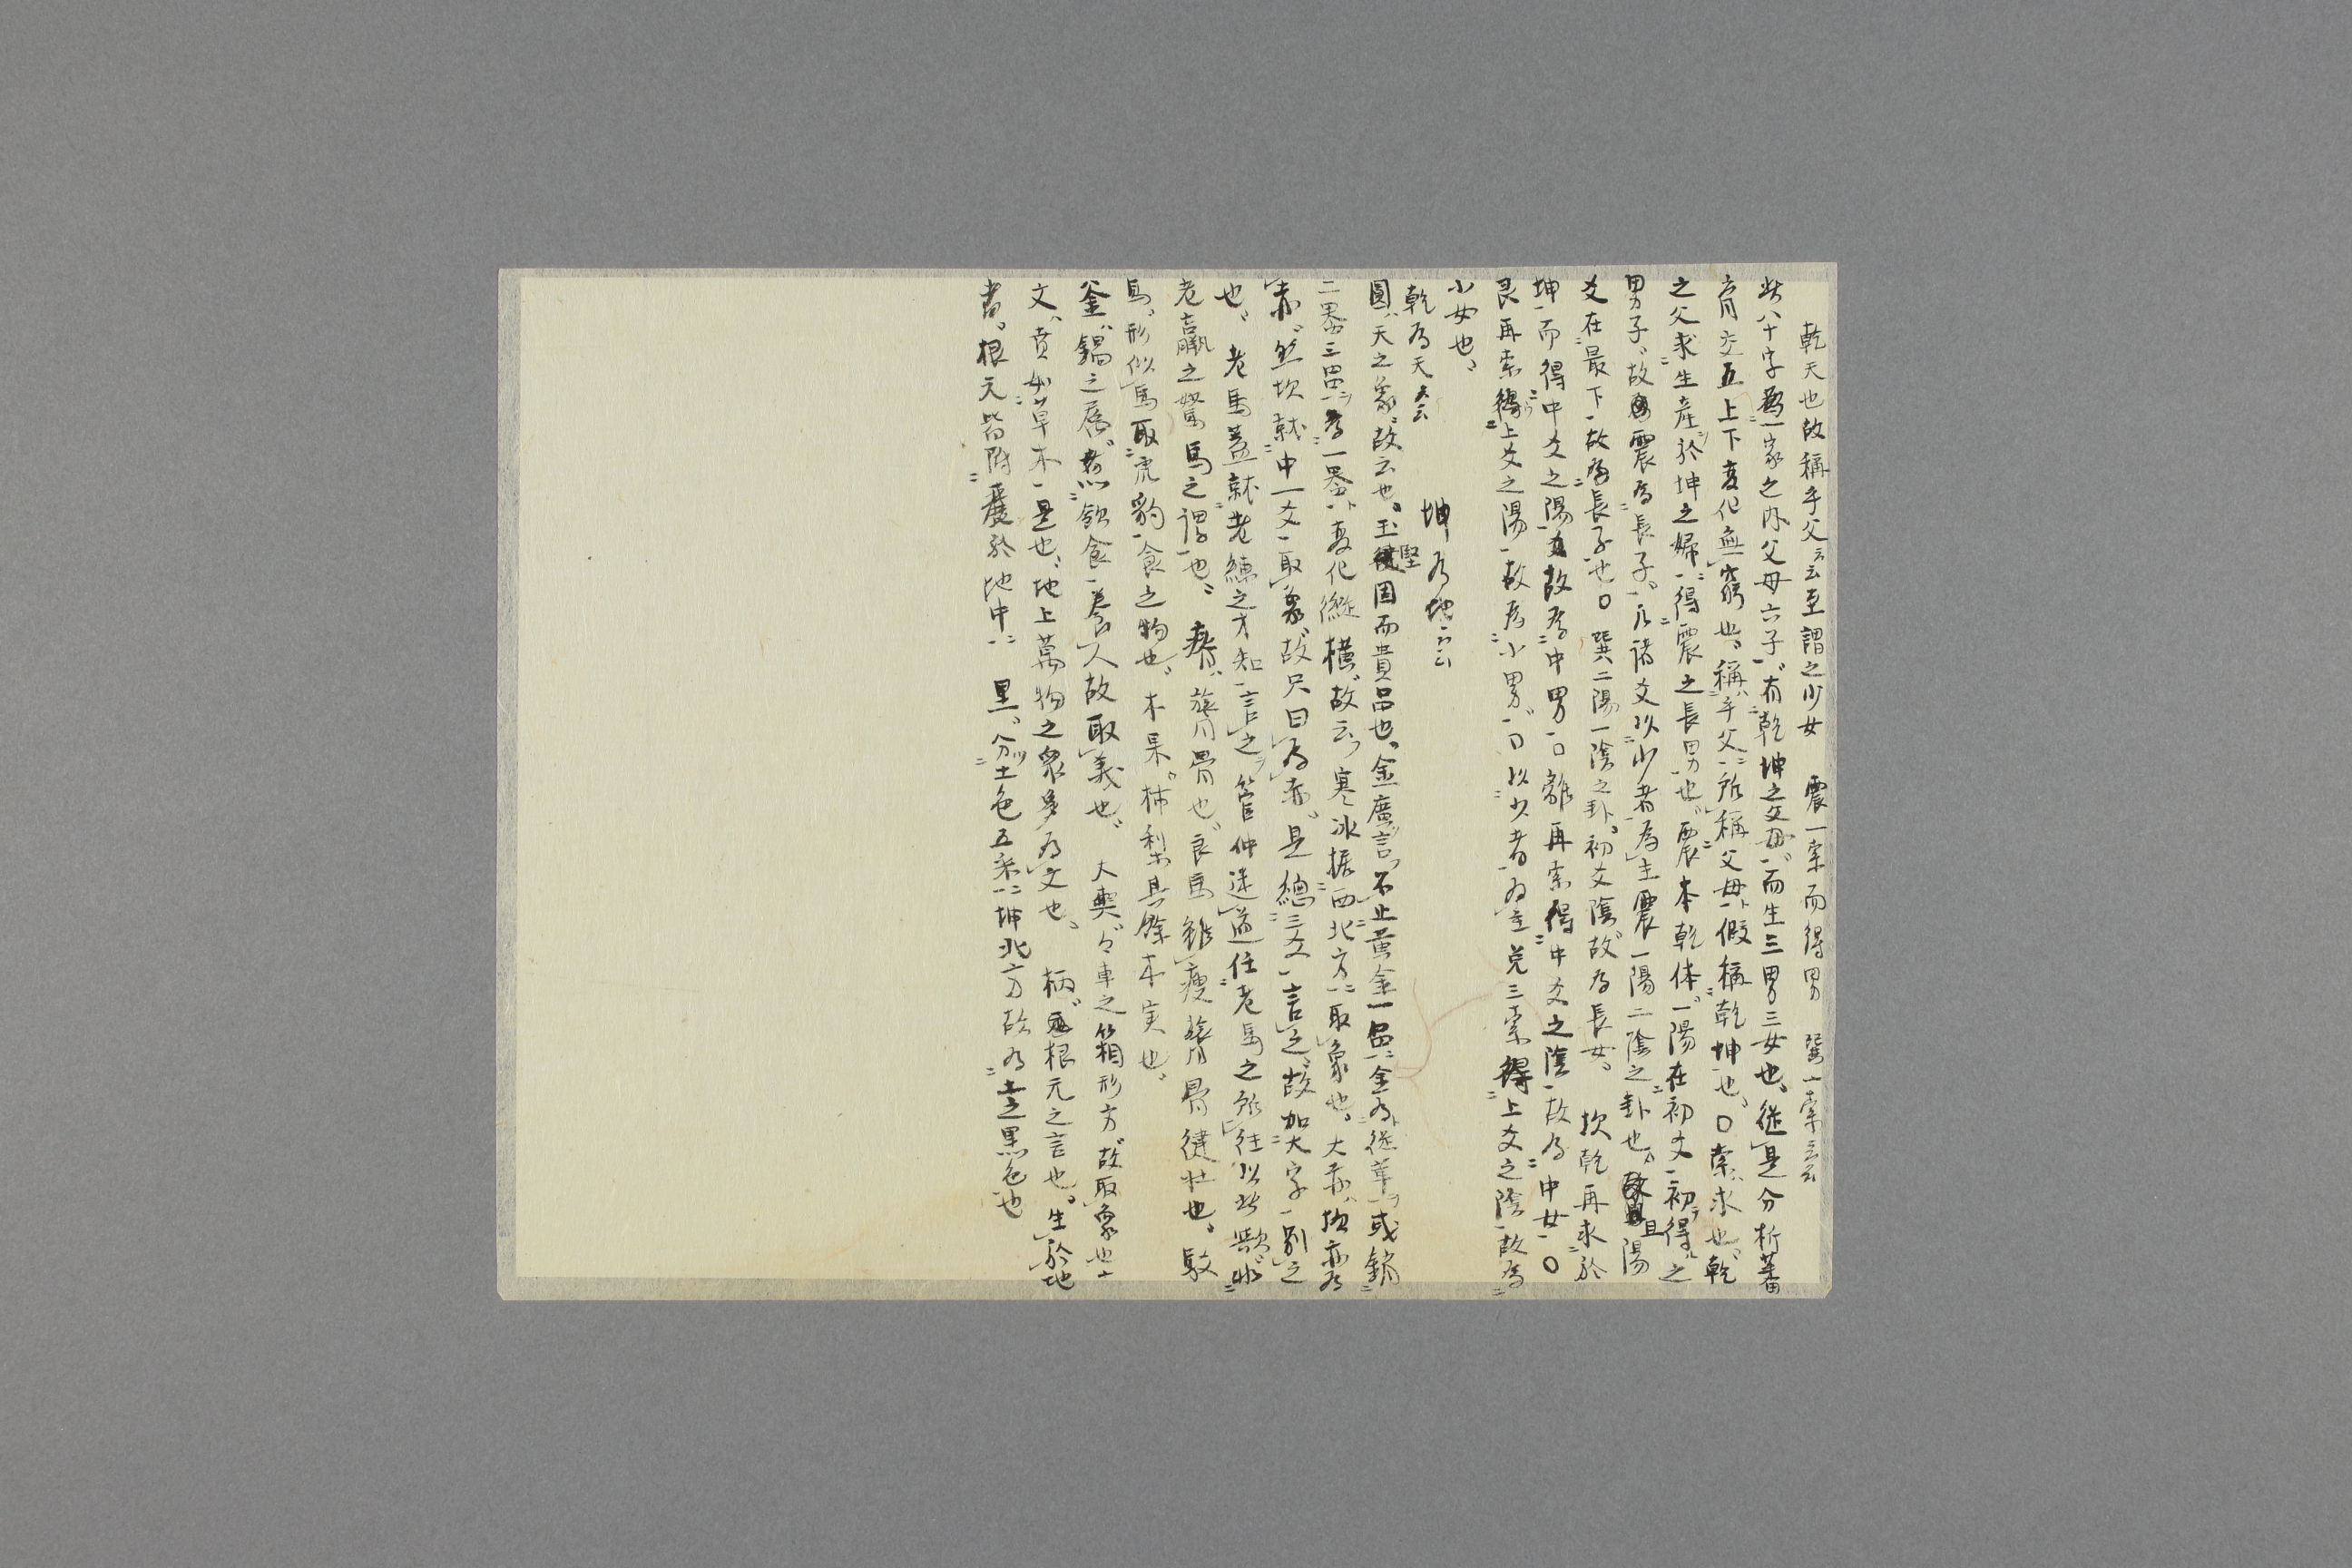 乾天也故稱乎父云云至謂之少女　震一索而得男　巽一索云云
此八十字為一家之内父母六子有乾坤之父母而生三男三女也従是分析蕃
育交五上下変化無窮也稱乎父所稱父母假稱乾坤也〇索求也乾
之父求生産於坤之婦得震之長男也震本乾体一陽在初爻初得之
男子故震為長子凡諸爻以少者為主震一陽二陰之卦也且陽
爻在最下故為長子也〇巽二陽一陰之卦初爻陰故為長女　坎乾再求於
坤而得中爻之陽故為中男〇離再索得中爻之陰故為中女〇
艮再索得上爻之陽故為小男〇以少者為主兌三索得上爻之陰故為
小女也
乾為天云云　坤為地云云
圓天之象故云也玉堅固而貴品也金廣言不止黄金一品金為従革或鎔
二器三器為一器変化縦横故云寒冰据西北方取象也大赤坎亦為
赤然坎就中一爻取象故只曰為赤是總三爻言之故加大字別之
也老馬蓋就老練之才知言之管仲迷道任老馬之所往以此歟
老羸之駑馬之謂也瘠膂骨也良馬雖瘦膂骨健壮也駁
馬形似馬取虎豹食之物也木果柿梨其餘木実也
釜鍋之属煮飲食養人故取義也　大輿々車之箱形方故取象也
文賁如草木是也地上萬物之衆多為文也　柄根元之言也生於地
者根元皆附麗於地中　黒分土色五采坤北方故為土之黒色也